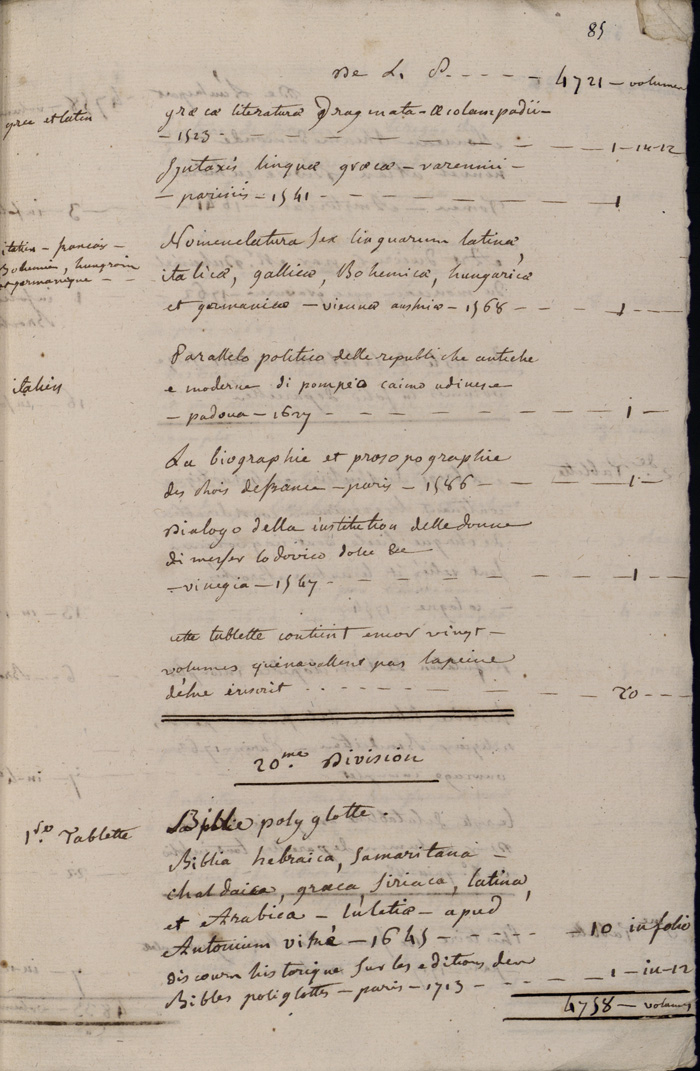 85
De L. P. - - - - - 4721 - volumes
grec et latin
græcæ literaturæ Dragmata - œcolampadii -
- 1523 - - - - - - 1 - in-12
Syntaxis linguæ græcæ - varennii -
- parisiis - 1541 - - - - - 1
italien - françois -
Bohemien, hungrois
et germanique - -
Nomenclatura sex linguarum latinæ,
italicæ, gallicæ, Bohemicæ, hungaricæ
et germanicæ - viennæ austriæ - 1568 - - - - 1 - - -
italien
Parallelo politico delle republiche antiche
e moderne di pompeo caimo udinese
- padoua - 1627 - - - - - - 1 -
La biographie et prosopographie
des Rois de france - paris - 1586 - - - - - 1 -
Dialogo della institution delle donne
di messer lodovico dolce &c
- vinegia - 1547 - - - - - - - 1 - -
cette tablette contient encor vingt -
volumes qui ne vallent pas la peine
d'être inscrit - - - - - - - - - 20 - - -
20.me Division
1ere Tablette
Biblie polyglotte.
Biblia hebraica, samaritana -
chaldaica, græca, siriaca, latina,
et Arabica - lutetiæ - apud
Antonium vitré - 1645 - - - - - - 10 in folio
discours historique sur les editions des
Bibles poliglottes - paris - 1713 - - - - 1 - in-12
4758 - volumes